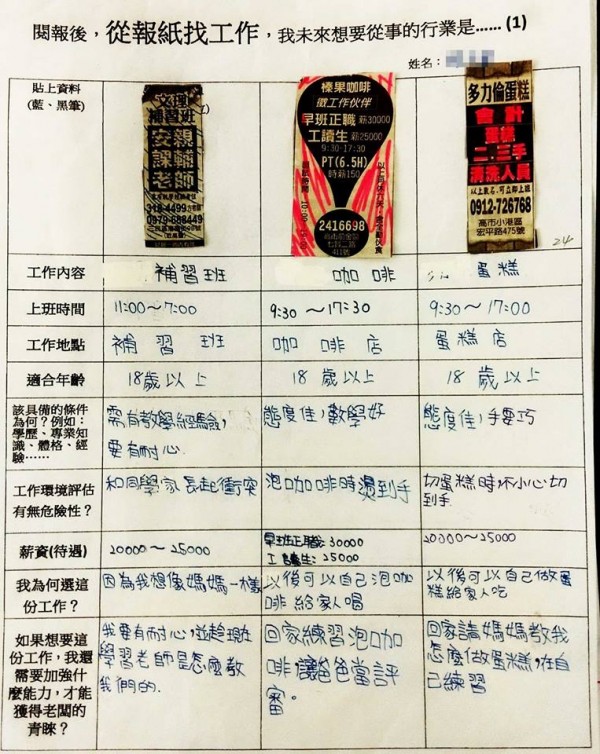 閱報後，從報紙找工作，我未來想要從事的行業是…… (1)
姓名：
貼上資料
(藍、黑筆)
文理
補習班
安親
課輔
老師
318-4499
0979-688449
榛果咖啡
徵工作伙伴
早班正職 薪30000
工讀生 薪25000
9:30-17:30
PT(6.5H)
時薪150
2416698
多力倫蛋糕
會計
蛋糕
二.三手
清洗人員
以上數名,可立即上班
0912-726768
高市小港區
宏平路475號
24
工作內容 補習班 咖啡 蛋糕
上班時間 11:00～7:00 9:30～17:30 9:30～17:00
工作地點 補習班 咖啡店 蛋糕店
適合年齡 18歲以上 18歲以上 18歲以上
該具備的條件
為何？例如：
學歷、專業知
識、體格、經
驗……
需有教學經驗,
要有耐心.
態度佳,數學好
態度佳,手要巧
工作環境評估
有無危險性？
和同學家長起衝突
泡咖啡時燙到手
切蛋糕時不小心切
到手
薪資(待遇) 20000～25000
早班正職:30000
工讀生:25000
20000～25000
我為何選這
份工作？
因為我想像媽媽一樣
以後可以自己泡咖
啡給家人喝
以後可以自己做蛋
糕給家人吃
如果想要這
份工作，我還
需要加強什
麼能力，才能
獲得老闆的
青睞？
我要有耐心,並趁現在
學習老師是怎麼教
我們的.
回家練習泡咖
啡讓爸爸當評
審。
回家請媽媽教我
怎麼做蛋糕,在自
己練習